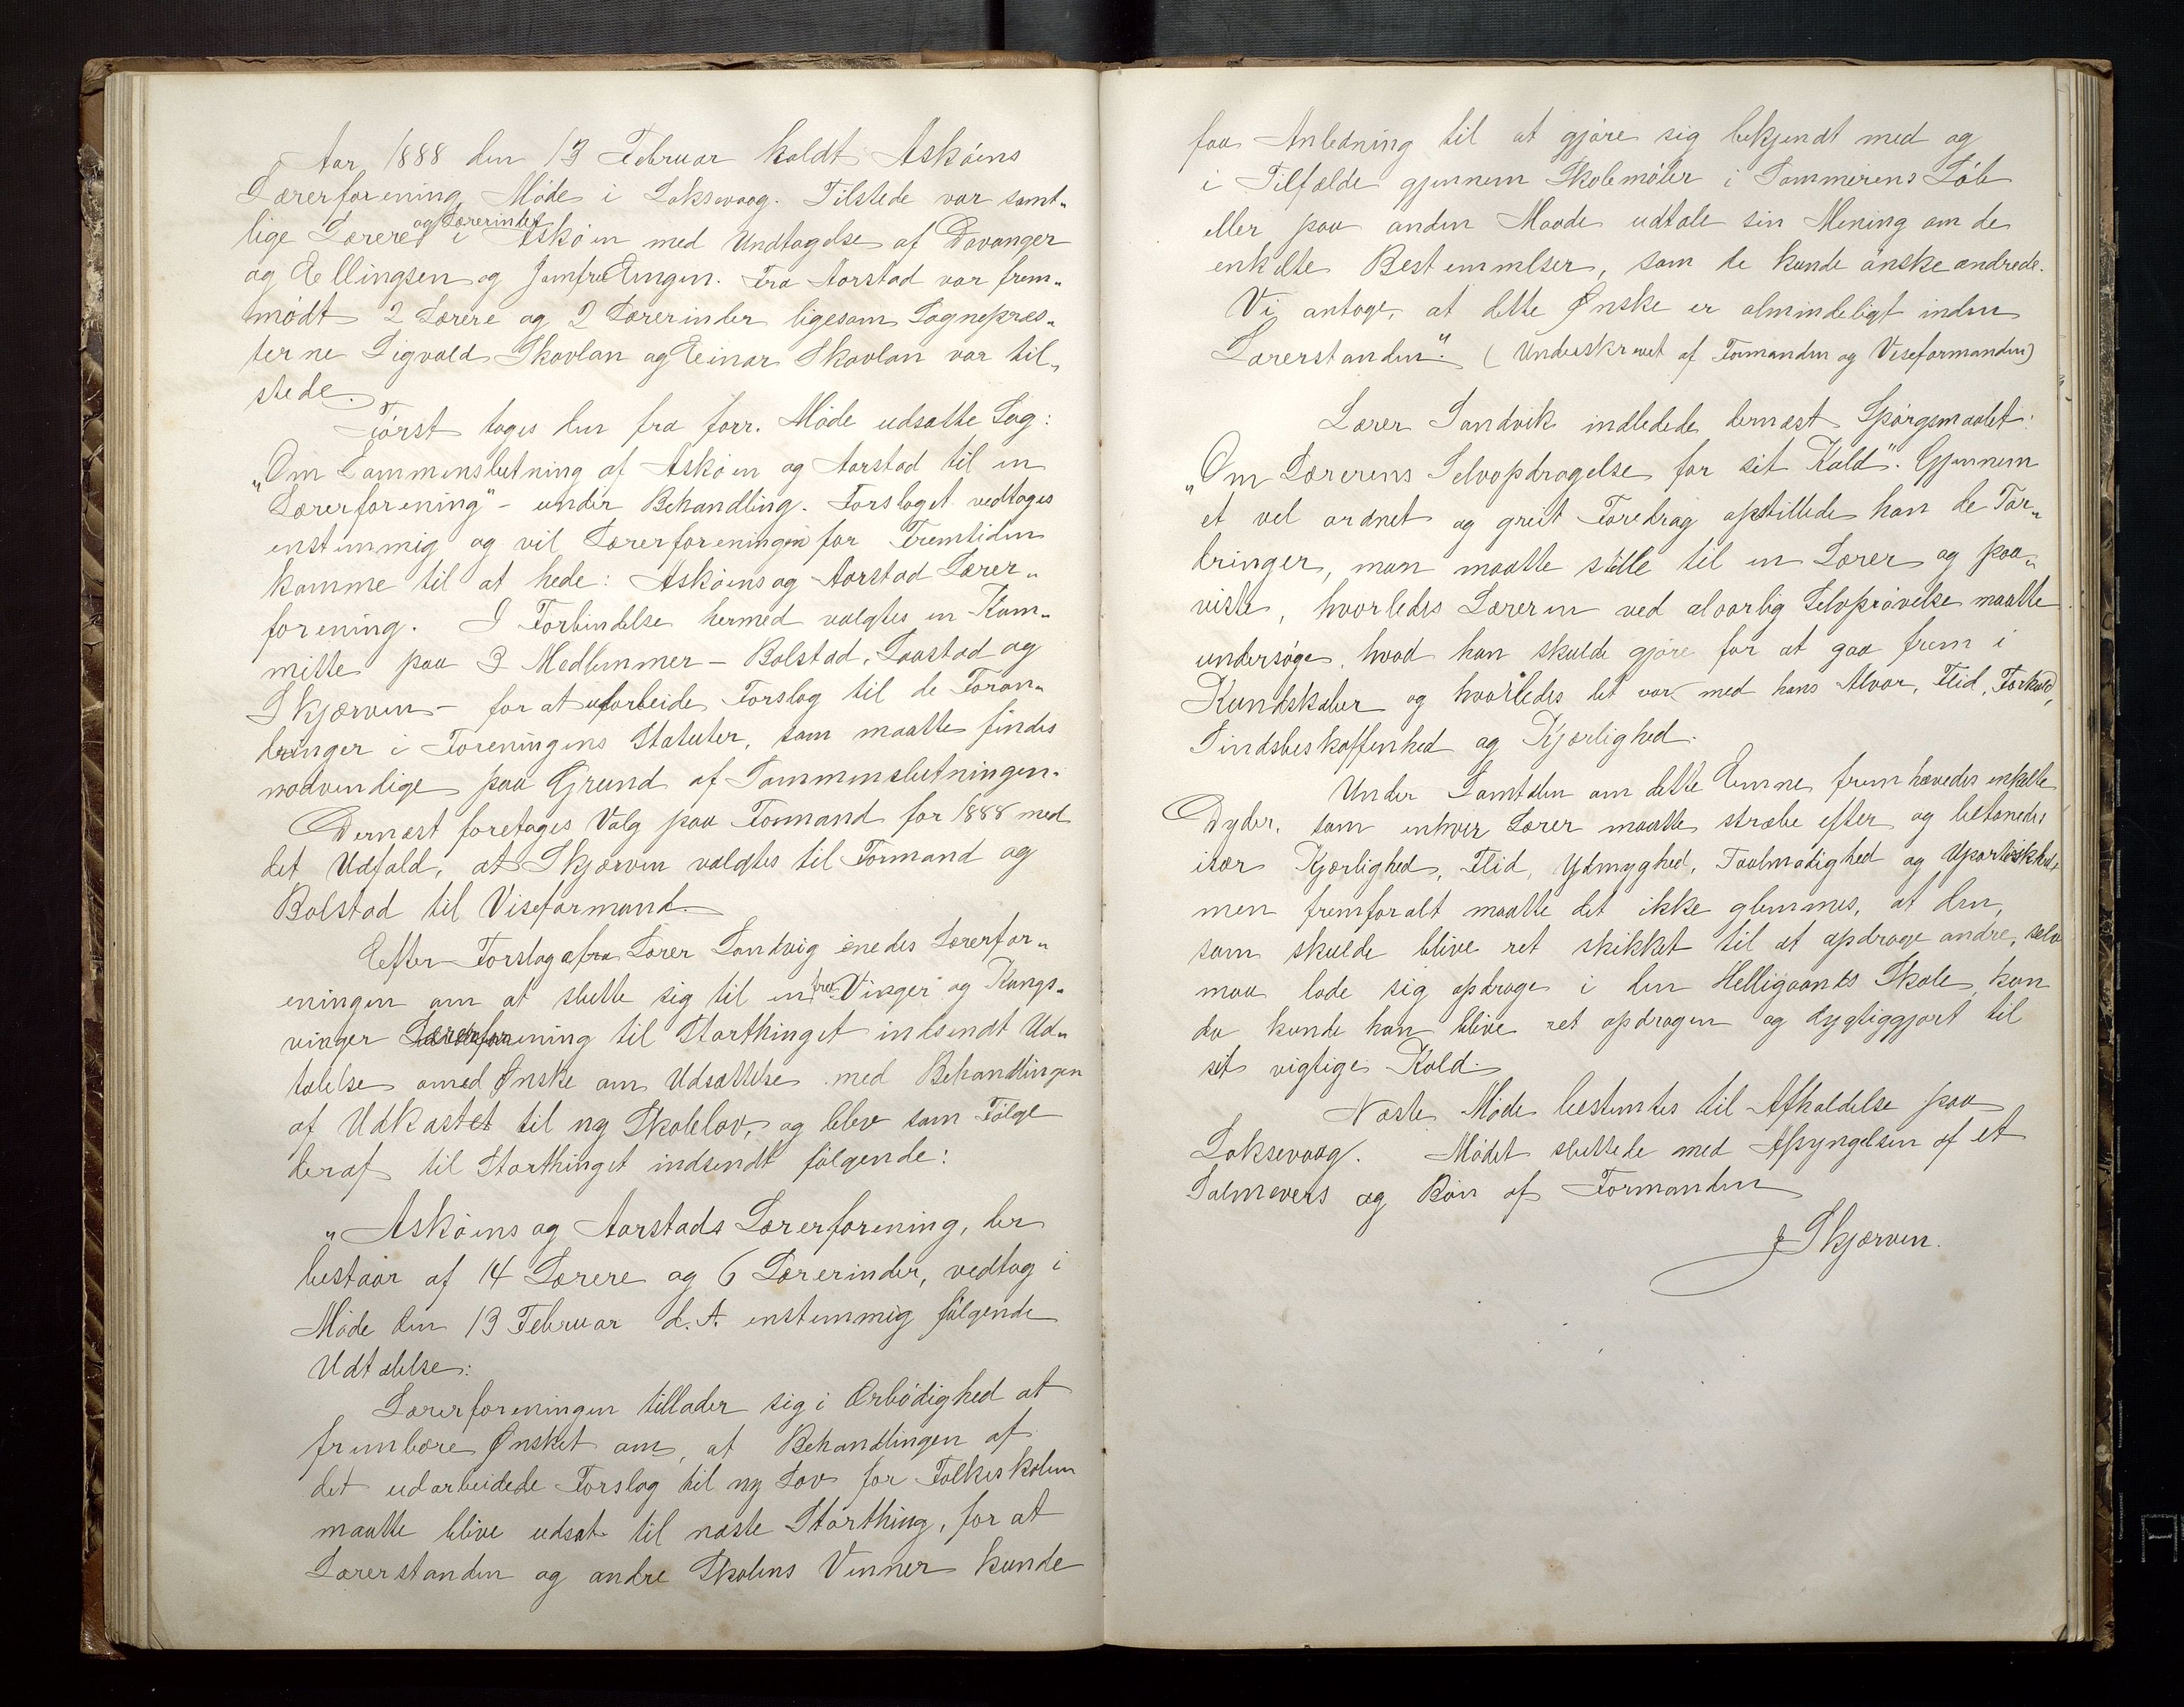 Aar 1888 den 13 Februar holdt Askøens
Lærerforening Møde i Laksevaag. Tilstede var samt„
lige Lærere og Lærerinder i Askøen med Undtagelse af Davanger
og Ellingsen og Jomfru Engen. Fra Aarstad var frem„
mødt 2 Lærere og 2 Lærerinder ligesom Sognepræs„
terne Sigvald Skavlan og Einar Skavlan var til„
stede.
Først toges den fra forr. Møde udsatte Sag:
„Om Sammenslutning af Askøen og Aarstad til en
Lærerforening" - under Behandling. Forslaget vedtoges
enstemmig og vil Lærerforeningen for Fremtiden
komme til at hede: Askøens og Aarstad Lærer„
forening. I Forbindelse hermed valgtes en Kom„
mitte paa 3 Medlemmer - Bolstad, Laastad og
Skjærven - for at udarbeide Forslag til de Foran„
dringer i Foreningens Statuter, som maatte findes
nødvendige paa Grund af Sammenslutningen.
Dernæst foretoges Valg paa Formand for 1888 med
det Udfald, at Skjærven valgtes til Formand og
Bolstad til Viseformand.
Efter Forslag fra Lærer Sandvig enedes Lærerfor„
eningen om at slutte sig til en fra Vinger og Kongs„
vinger Lærerforening til Storthinget indsendt Ud„
talelse med Ønske om Udsættelse med Behandlingen
af Udkastet til ny Skolelov, og blev som Følge
deraf til Storthinget indsendt følgende:
„Askøens og Aarstads Lærerforening, der
bestaar af 14 Lærere og 6 Lærerinder, vedtog i
Møde den 13 Februar d. A. enstemmig følgende
Udtalelse:
Lærerforeningen tillader sig i Ærbødighed at
frembære Ønsket om, at Behandlingen af
det udarbeidede Forslag til ny Lov for Folkeskolen
maatte blive udsat til næste Storthing, for at
Lærerstanden og andre Skolens Venner kunde
faa Anledning til at gjøre sig bekjendt med og
i Tilfælde gjennem Skolemøter i Sommerens Løb
eller paa anden Maade udtale sin Mening om de
enkelte Bestemmelser, som de kunde ønske ændrede.
Vi antage, at dette Ønske er almindeligt inden
Lærerstanden". (Underskrevet af Formanden og Viseformanden)
Lærer Sandvik indledede dernæst Spørgsmaalet:
„Om Lærerens Selvopdragelse for sit Kald". Gjennem
et vel ordnet og greit Foredrag opstillede han de For„
dringer, man maatte stille til en Lærer og paa„
viste, hvorledes Læreren ved alvorlig Selvprøvelse maatte
undersøge, hvad han skulde gjøre for at gaa frem i
Kundskaber og hvorledes det var med hans Alvor, Flid, Forhold,
Sindsbeskaffenhed og Kjærlighed.
Under Samtalen om dette Emne fremhævedes enkelte
Dyder, som enhver Lærer maatte stræbe efter og betonedes
især Kjærlighed, Flid, Ydmyghed, Taalmodighed og Upartiskhed,
men fremforalt maatte det ikke glemmes, at den,
som skulde blive ret skikket til at opdrage andre, selv
maa lade sig opdrage i den Helligaands Skole, kun
da kunde han blive ret opdragen og dygtiggjort til
sit vigtige Kald.
Næste Møde bestemtes til Afholdelse paa
Laksevaag. Mødet sluttede med Afsyngelsen af et
Salmevers og Bøn af Formanden
J Skjærven.